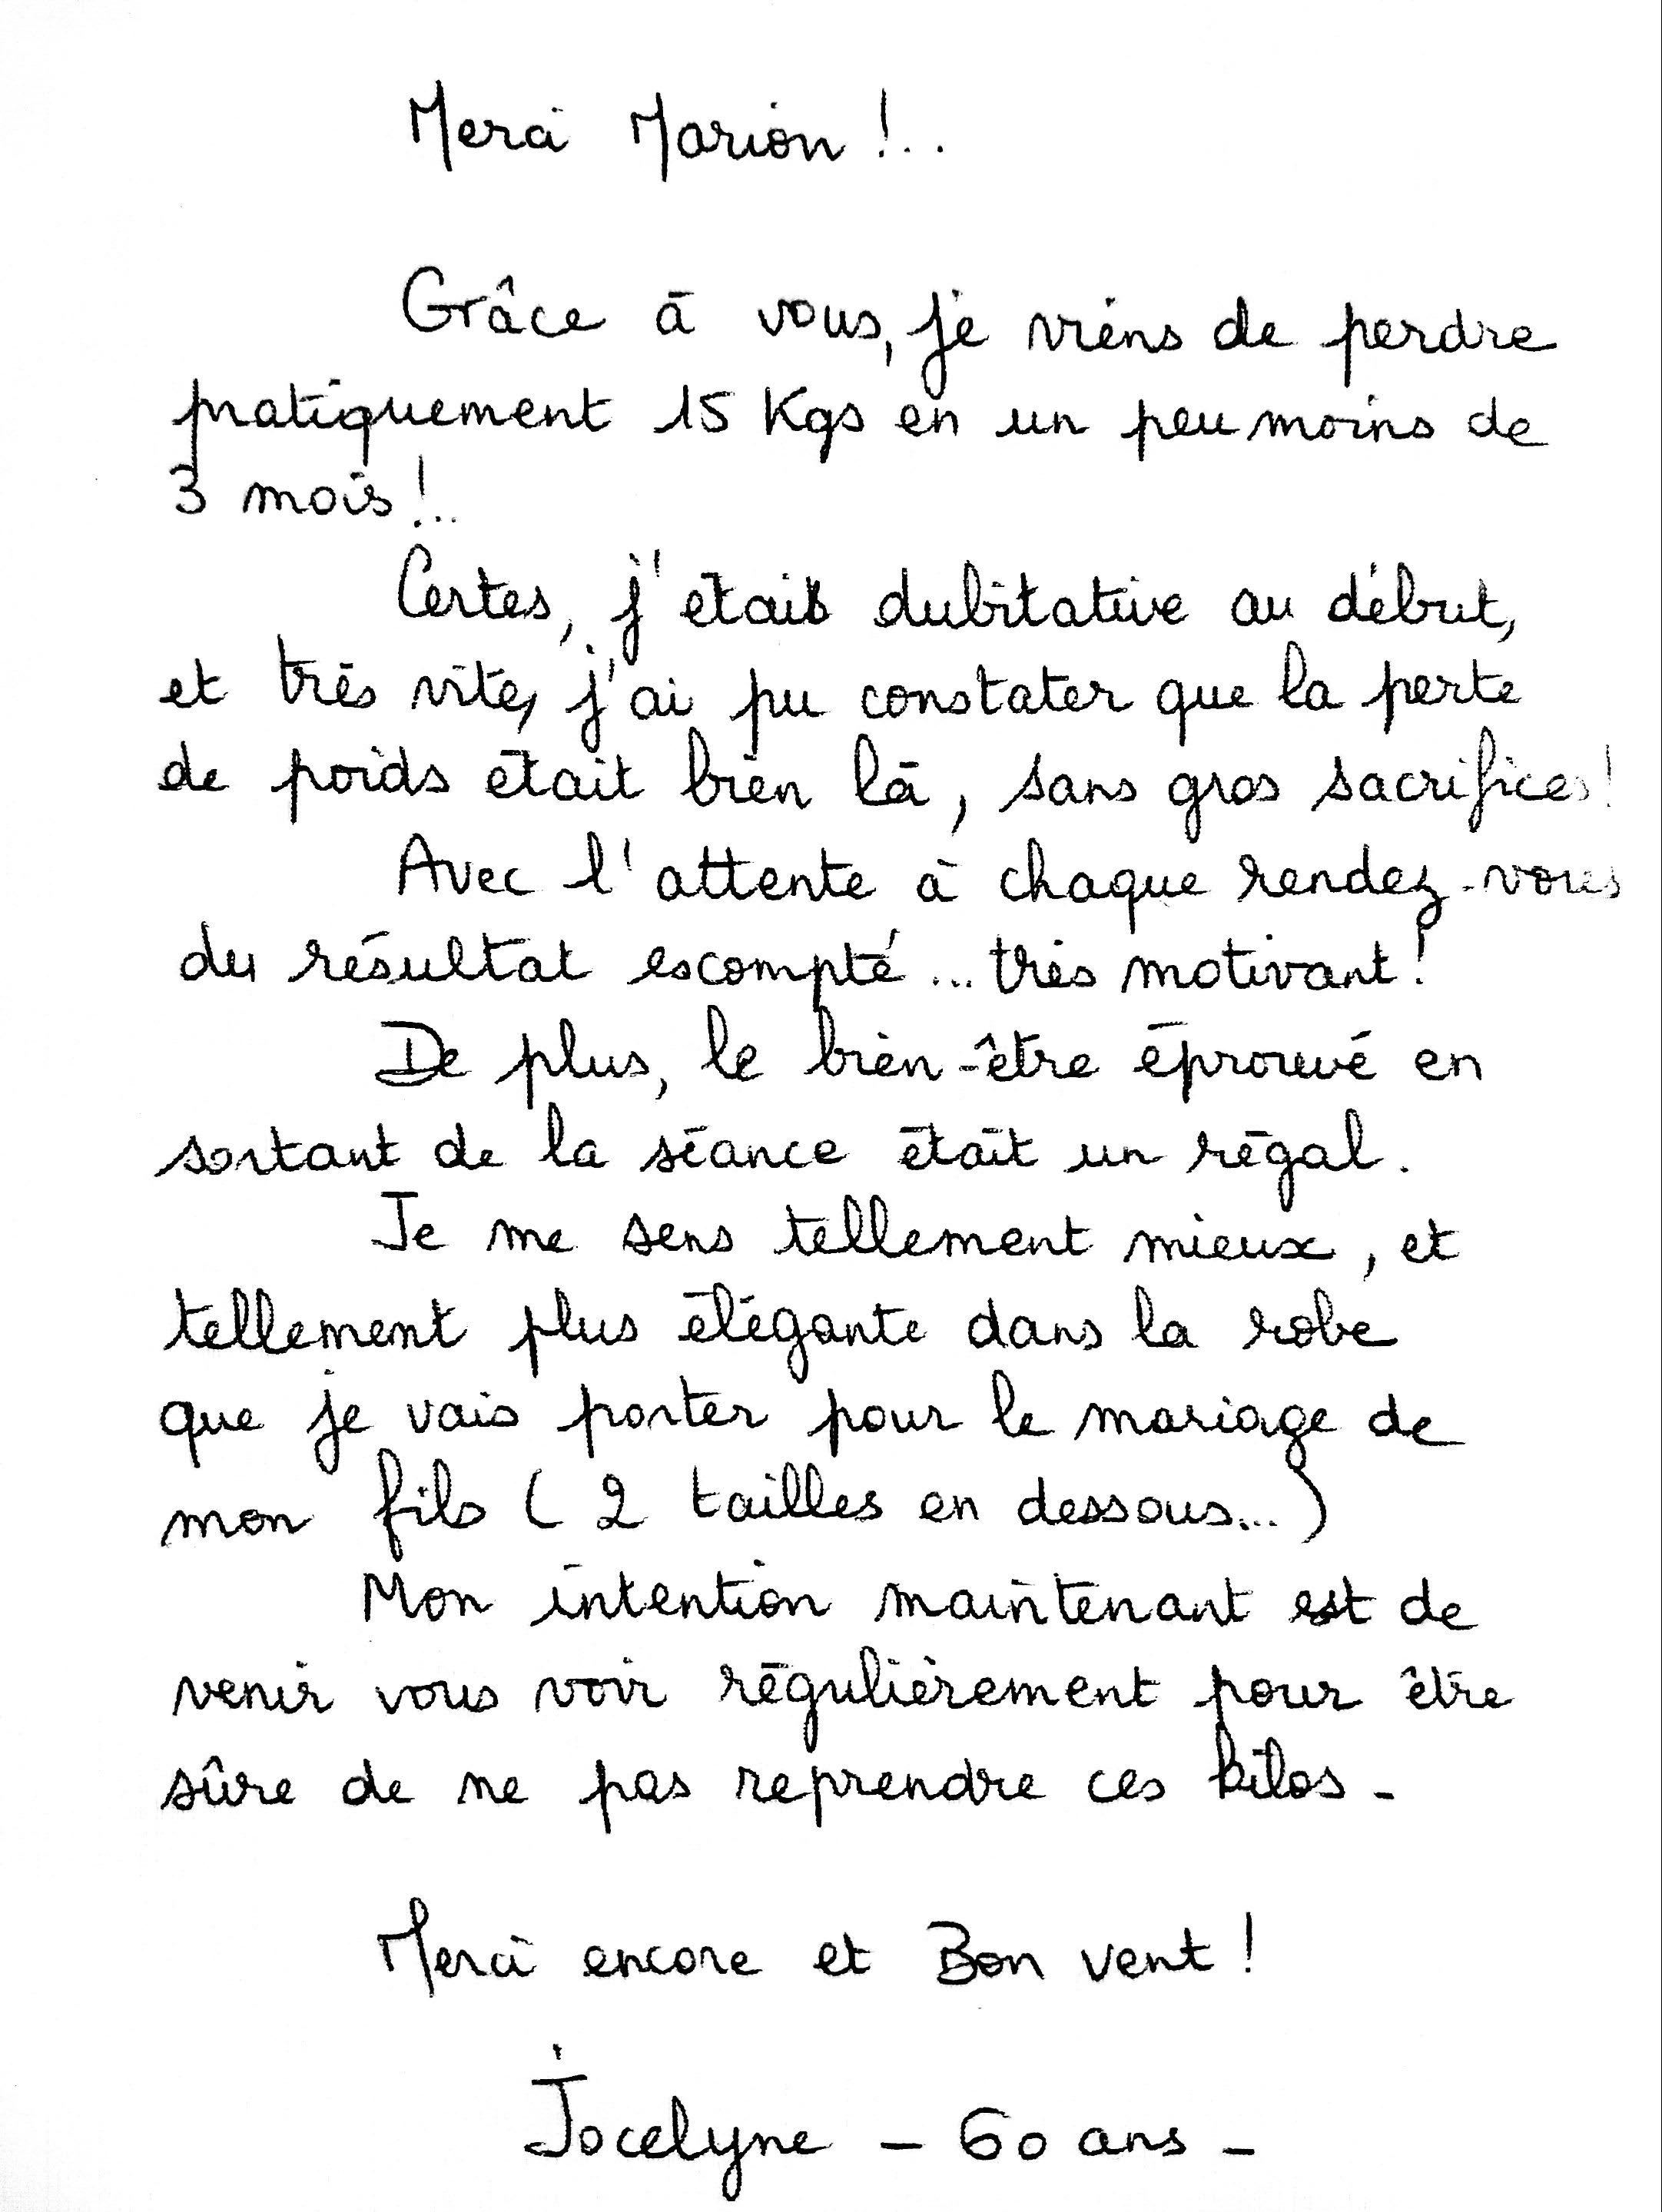 Merci Marion !..
Grâce à vous, je viens de perdre
pratiquement 15 Kgs en un peu moins de
3 mois !...
Certes, j'étais dubitative au début,
et très vite, j'ai pu constater que la perte
de poids était bien là, sans gros sacrifices !
Avec l'attente à chaque rendez-vous
du résultat escompté... très motivant !
De plus, le bien-être éprouvé en
sortant de la séance était un régal.
Je me sens tellement mieux, et
tellement plus élégante dans la robe
que je vais porter pour le mariage de
mon fils ( 2 tailles en dessous...)
Mon intention maintenant est de
venir vous voir régulièrement pour être
sûre de ne pas reprendre ces kilos -
Merci encore et Bon vent !
Jocelyne - 60 ans -